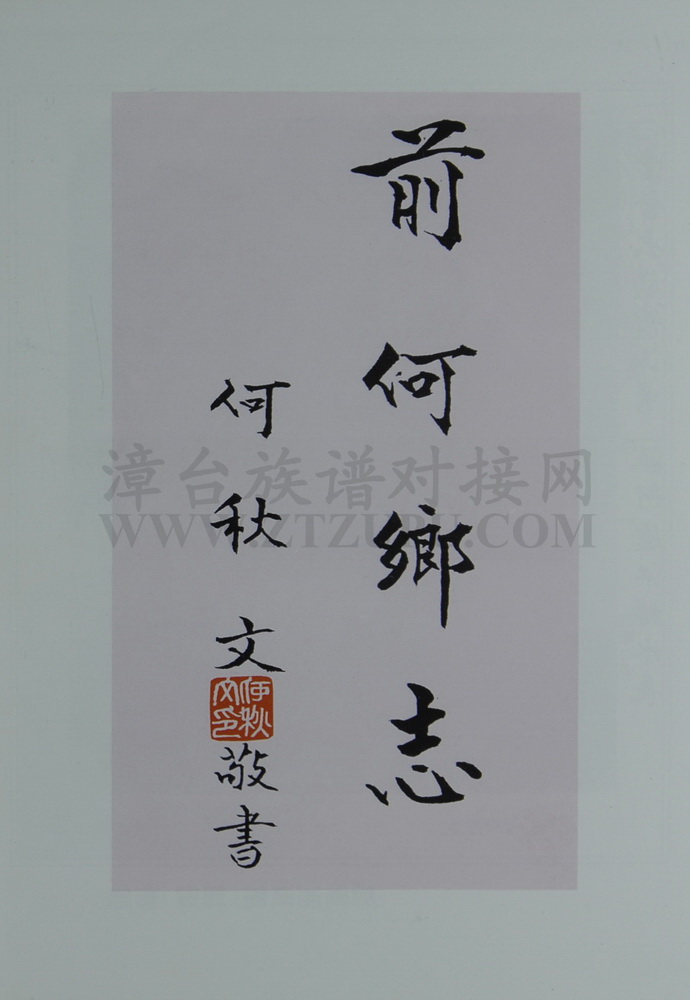 前何鄉志
何秋文敬書
何秋文印
漳台族谱对接网
WWW.ZTZUPU.COM